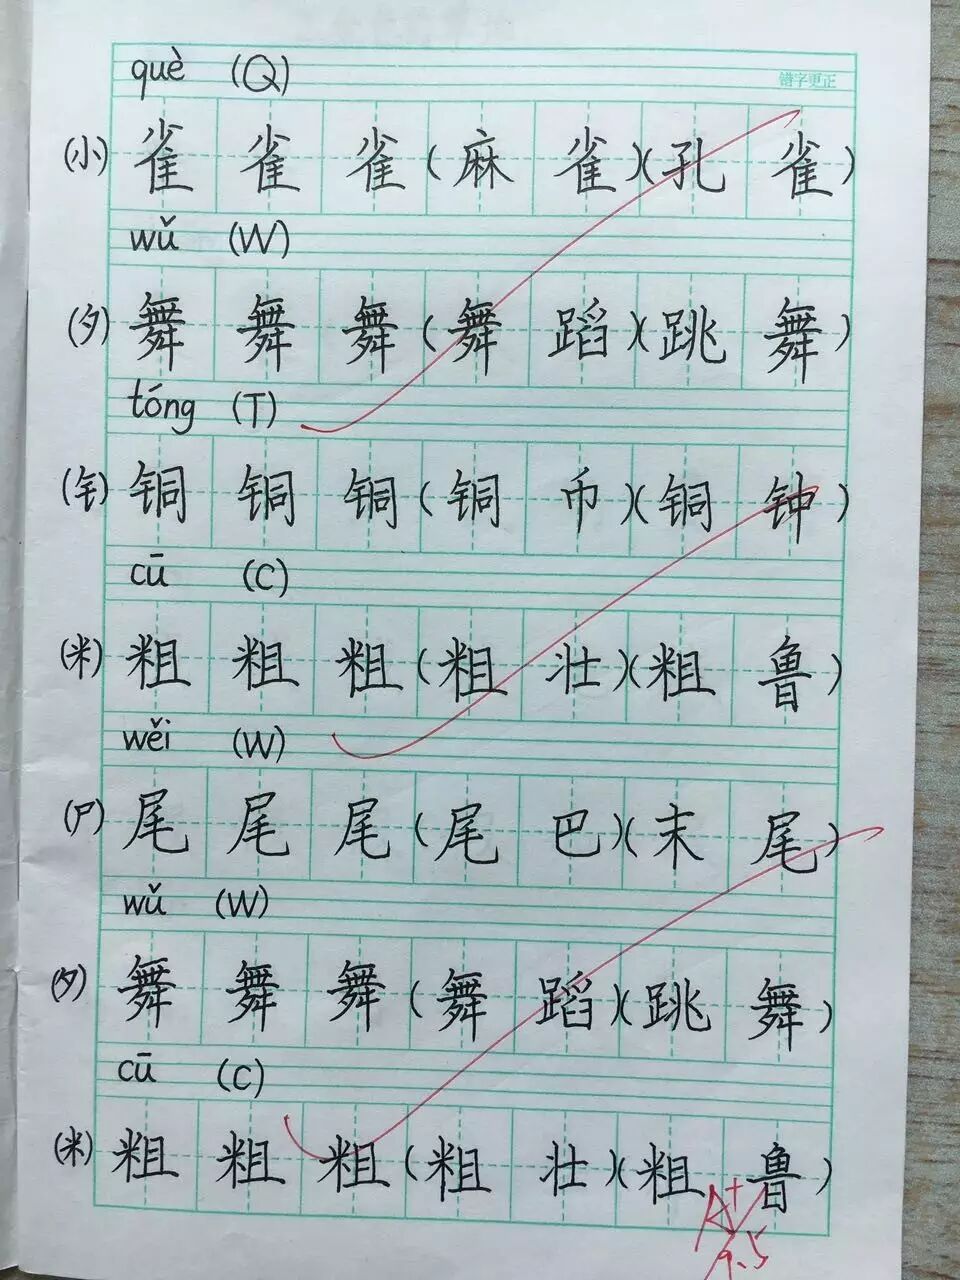 què (Q) 错字更正
(小) 雀 雀 雀 (麻 雀)(孔 雀)
wǔ (W)
(夕) 舞 舞 舞 (舞 蹈)(跳 舞)
tóng (T)
(钅) 铜 铜 铜 (铜 币)(铜 钟)
cū (C)
(米) 粗 粗 粗 (粗 壮)(粗 鲁)
wěi (W)
(尸) 尾 尾 尾 (尾 巴)(末 尾)
wǔ (W)
(夕) 舞 舞 舞 (舞 蹈)(跳 舞)
cū (C)
(米) 粗 粗 粗 (粗 壮)(粗 鲁)
A+
9.5